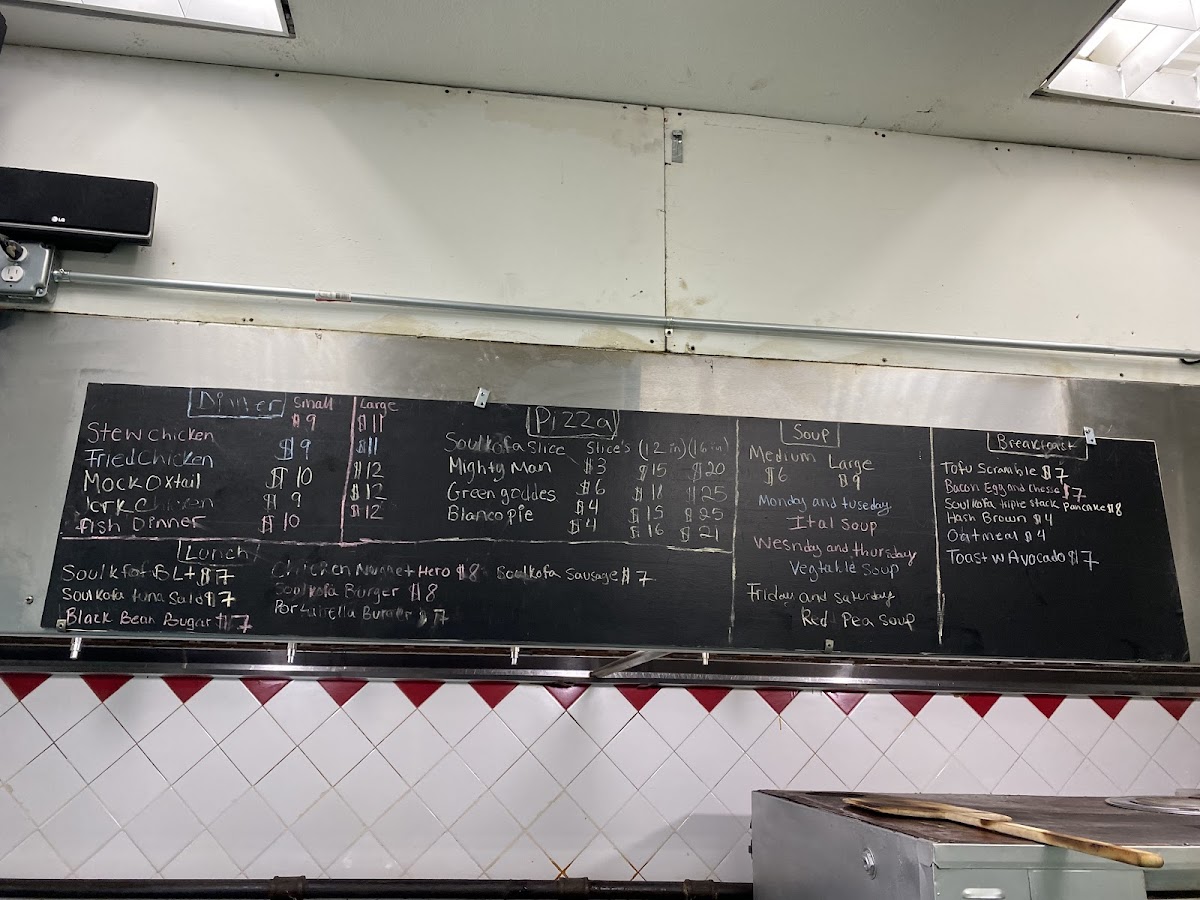 LG
Dinner Small Large
Stew Chicken $9 $11
Fried Chicken $9 $11
Mock Oxtail $10 $12
Jerk Chicken $9 $12
fish Dinner $10 $12
Pizza
Soulkofa Slice Slice's (12 in) (16 in)
$3 $15 $20
Mighty Man $6 $18 $25
Green goddes $4 $15 $25
Blanco pie $4 $16 $21
Lunch
Soulkofa BLt $7
Soulkofa tuna Salad $7
Black Bean Bugar $7
Chicken Nugget Hero $8
Soulkofa Burger $8
Portabella Burger $7
Soulkofa Sausage $7
Soup
Medium Large
$6 $9
Monday and tuseday
Ital Soup
Wesnday and thursday
Vegtable Soup
Friday and Saturday
Red Pea Soup
Breakfast
Tofu Scramble $7
Bacon Egg and Chesse $7
Soulkofa triple Stack Pancake $8
Hash Brown $4
Oatmeal $4
Toast w Avocado $7